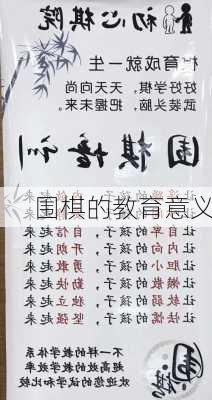 初心棋院
棋育成就一生
好好学棋，天天向尚
武装头脑，把握未来。
围棋培训
围棋的教育意义
让自卑的孩子，自信起来
让内向的孩子，开朗起来
让胆小的孩子，勇敢起来
让懒散的孩子，勤快起来
让软弱的孩子，独立起来
让怯懦的孩子，坚强起来
不一样的教学体系
高效率的教学效
欢迎您的试学和比较
围棋